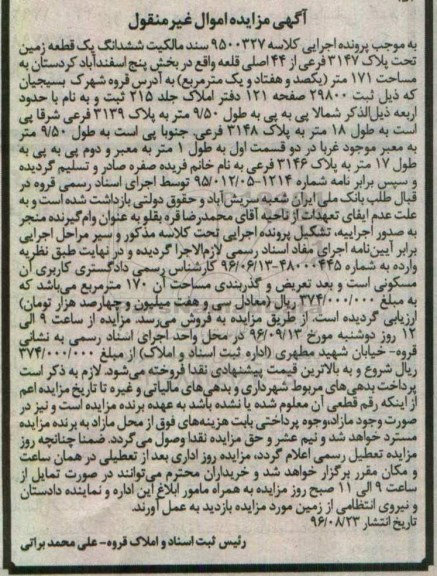 آگهی مزایده اموال غیرمنقول
به موجب پرونده اجرایی کلاسه ۹۵۰۰۳۲۷ سند مالکیت ششدانگ یک قطعه زمین
تحت پلاک ۳۱۴۷ فرعی از ۴۴ اصلی قلعه واقع در بخش پنج اسفندآباد کردستان به
مساحت ۱۷۱ متر (یکصد و هفتاد و یک مترمربع) به آدرس قروه شهرک بسیجیان
که ذیل ثبت ۲۹۸۰۰ صفحه ۱۲۱ دفتر املاک جلد ۲۱۵ ثبت و به نام با حدود
اربعه ذیل‌الذکر شمالا پی به پی به طول ۹/۵۰ متر به پلاک ۳۱۳۹ فرعی شرقا پی
است به طول ۱۸ متر به پلاک ۳۱۴۸ فرعی. جنوبا پی است به طول ۹/۵۰ متر
به معبر موجود غربا در دو قسمت اول به طول ۱ متر به معبر و دوم پی به پی به
طول ۱۷ متر به پلاک ۳۱۴۶ فرعی به نام خانم فریده صفره صادر و تسلیم گردیده
و سپس برابر نامه شماره ۱۲۱۴-۹۵/۰۱۲/۰۵ توسط اجرای اسناد رسمی قروه در
قبال طلب بانک ملی ایران شعبه سریش‌آباد و حقوق دولتی بازداشت شده است و به
علت عدم ایفای تعهدات از ناحیه آقای محمدرضا قره بقلو به عنوان وام‌گیرنده منجر
به صدور اجراییه، تشکیل پرونده اجرایی تحت کلاسه مذکور و سیر مراحل اجرایی
برابر آیین‌نامه اجرای مفاد اسناد رسمی لازم‌الاجرا گردیده و در نهایت طبق نظریه
وارده به شماره ۴۸۰۰۰۴۴۵-۹۶/۰۶/۱۳ کارشناس رسمی دادگستری کاربری آن
مسکونی است و بعد تعریض و گذربندی مساحت آن ۱۷۰ مترمربع می‌باشد که
به مبلغ ۳۷۴/۰۰۰/۰۰۰ ریال (معادل سی و هفت میلیون و چهارصد هزار تومان)
ارزیابی گردیده است. از طریق مزایده به فروش می‌رسد. مزایده از ساعت ۹ الی
۱۲ روز دوشنبه مورخ ۹۶/۰۹/۱۳ در محل واحد اجرای اسناد رسمی به نشانی
قروه- خیابان شهید مطهری (اداره ثبت اسناد و املاک) از مبلغ ۳۷۴/۰۰۰/۰۰۰
ریال شروع و به بالاترین قیمت پیشنهادی نقدا فروخته می‌شود. لازم به ذکر است
پرداخت بدهی‌های مربوط شهرداری و بدهی‌های مالیاتی و غیره تا تاریخ مزایده اعم
از اینکه رقم قطعی آن معلوم شده یا نشده باشد به عهده برنده مزایده است و نیز در
صورت وجود مازاد، وجوه پرداختی بابت هزینه‌های فوق از محل مازاد به برنده مزایده
مسترد خواهد شد و نیم عشر و حق مزایده نقدا وصول می‌گردد. ضمنا چنانچه روز
مزایده تعطیل رسمی اعلام گردد، مزایده روز اداری بعد از تعطیلی در همان ساعت
و مکان مقرر برگزار خواهد شد و خریداران محترم می‌توانند در صورت تمایل از
ساعت ۹ الی ۱۱ صبح روز مزایده به همراه مامور ابلاغ این اداره و نماینده دادستان
و نیروی انتظامی از زمین مورد مزایده بازدید به عمل آورند.
تاریخ انتشار ۹۶/۰۸/۲۳
رئیس ثبت اسناد و املاک قروه- علی محمد براتی